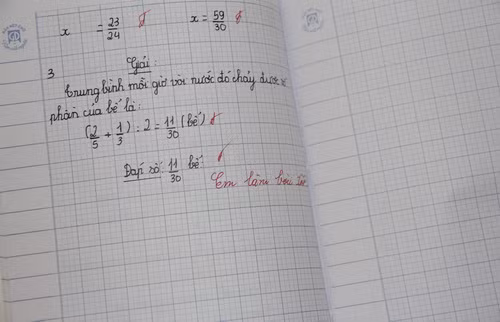 x = 23/24 x = 59/30
3 Giải:
Trung bình mỗi giờ vòi nước đó chảy được số
phần của bể là:
(2/5 + 1/3) : 2 = 11/30 (bể)
Đáp số: 11/30 bể
Em làm bài